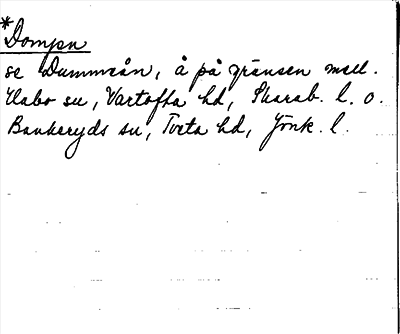 *Dompan
se Dummeån, å på gränsen mell.
Habo sn, Vartofta hd, Skarab. l. o.
Bankeryds sn, Tveta hd, Jönk. l.